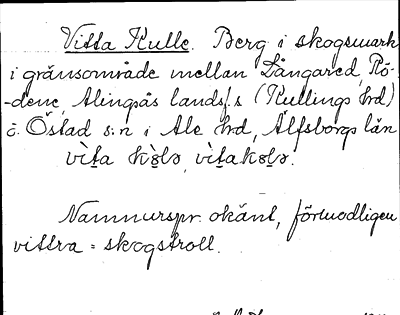 Vitta Kulle. Berg i skogsmark
i gränsområde mellan Långared, Rö-
-dene, Alingsås landsf.s (Kullings hd)
o. Östad s:n i Ale hd, Älfsborgs län
vìta kòlə, vìtakolə.
Namnurspr. okänt, förmodligen
vittra = skogstroll.